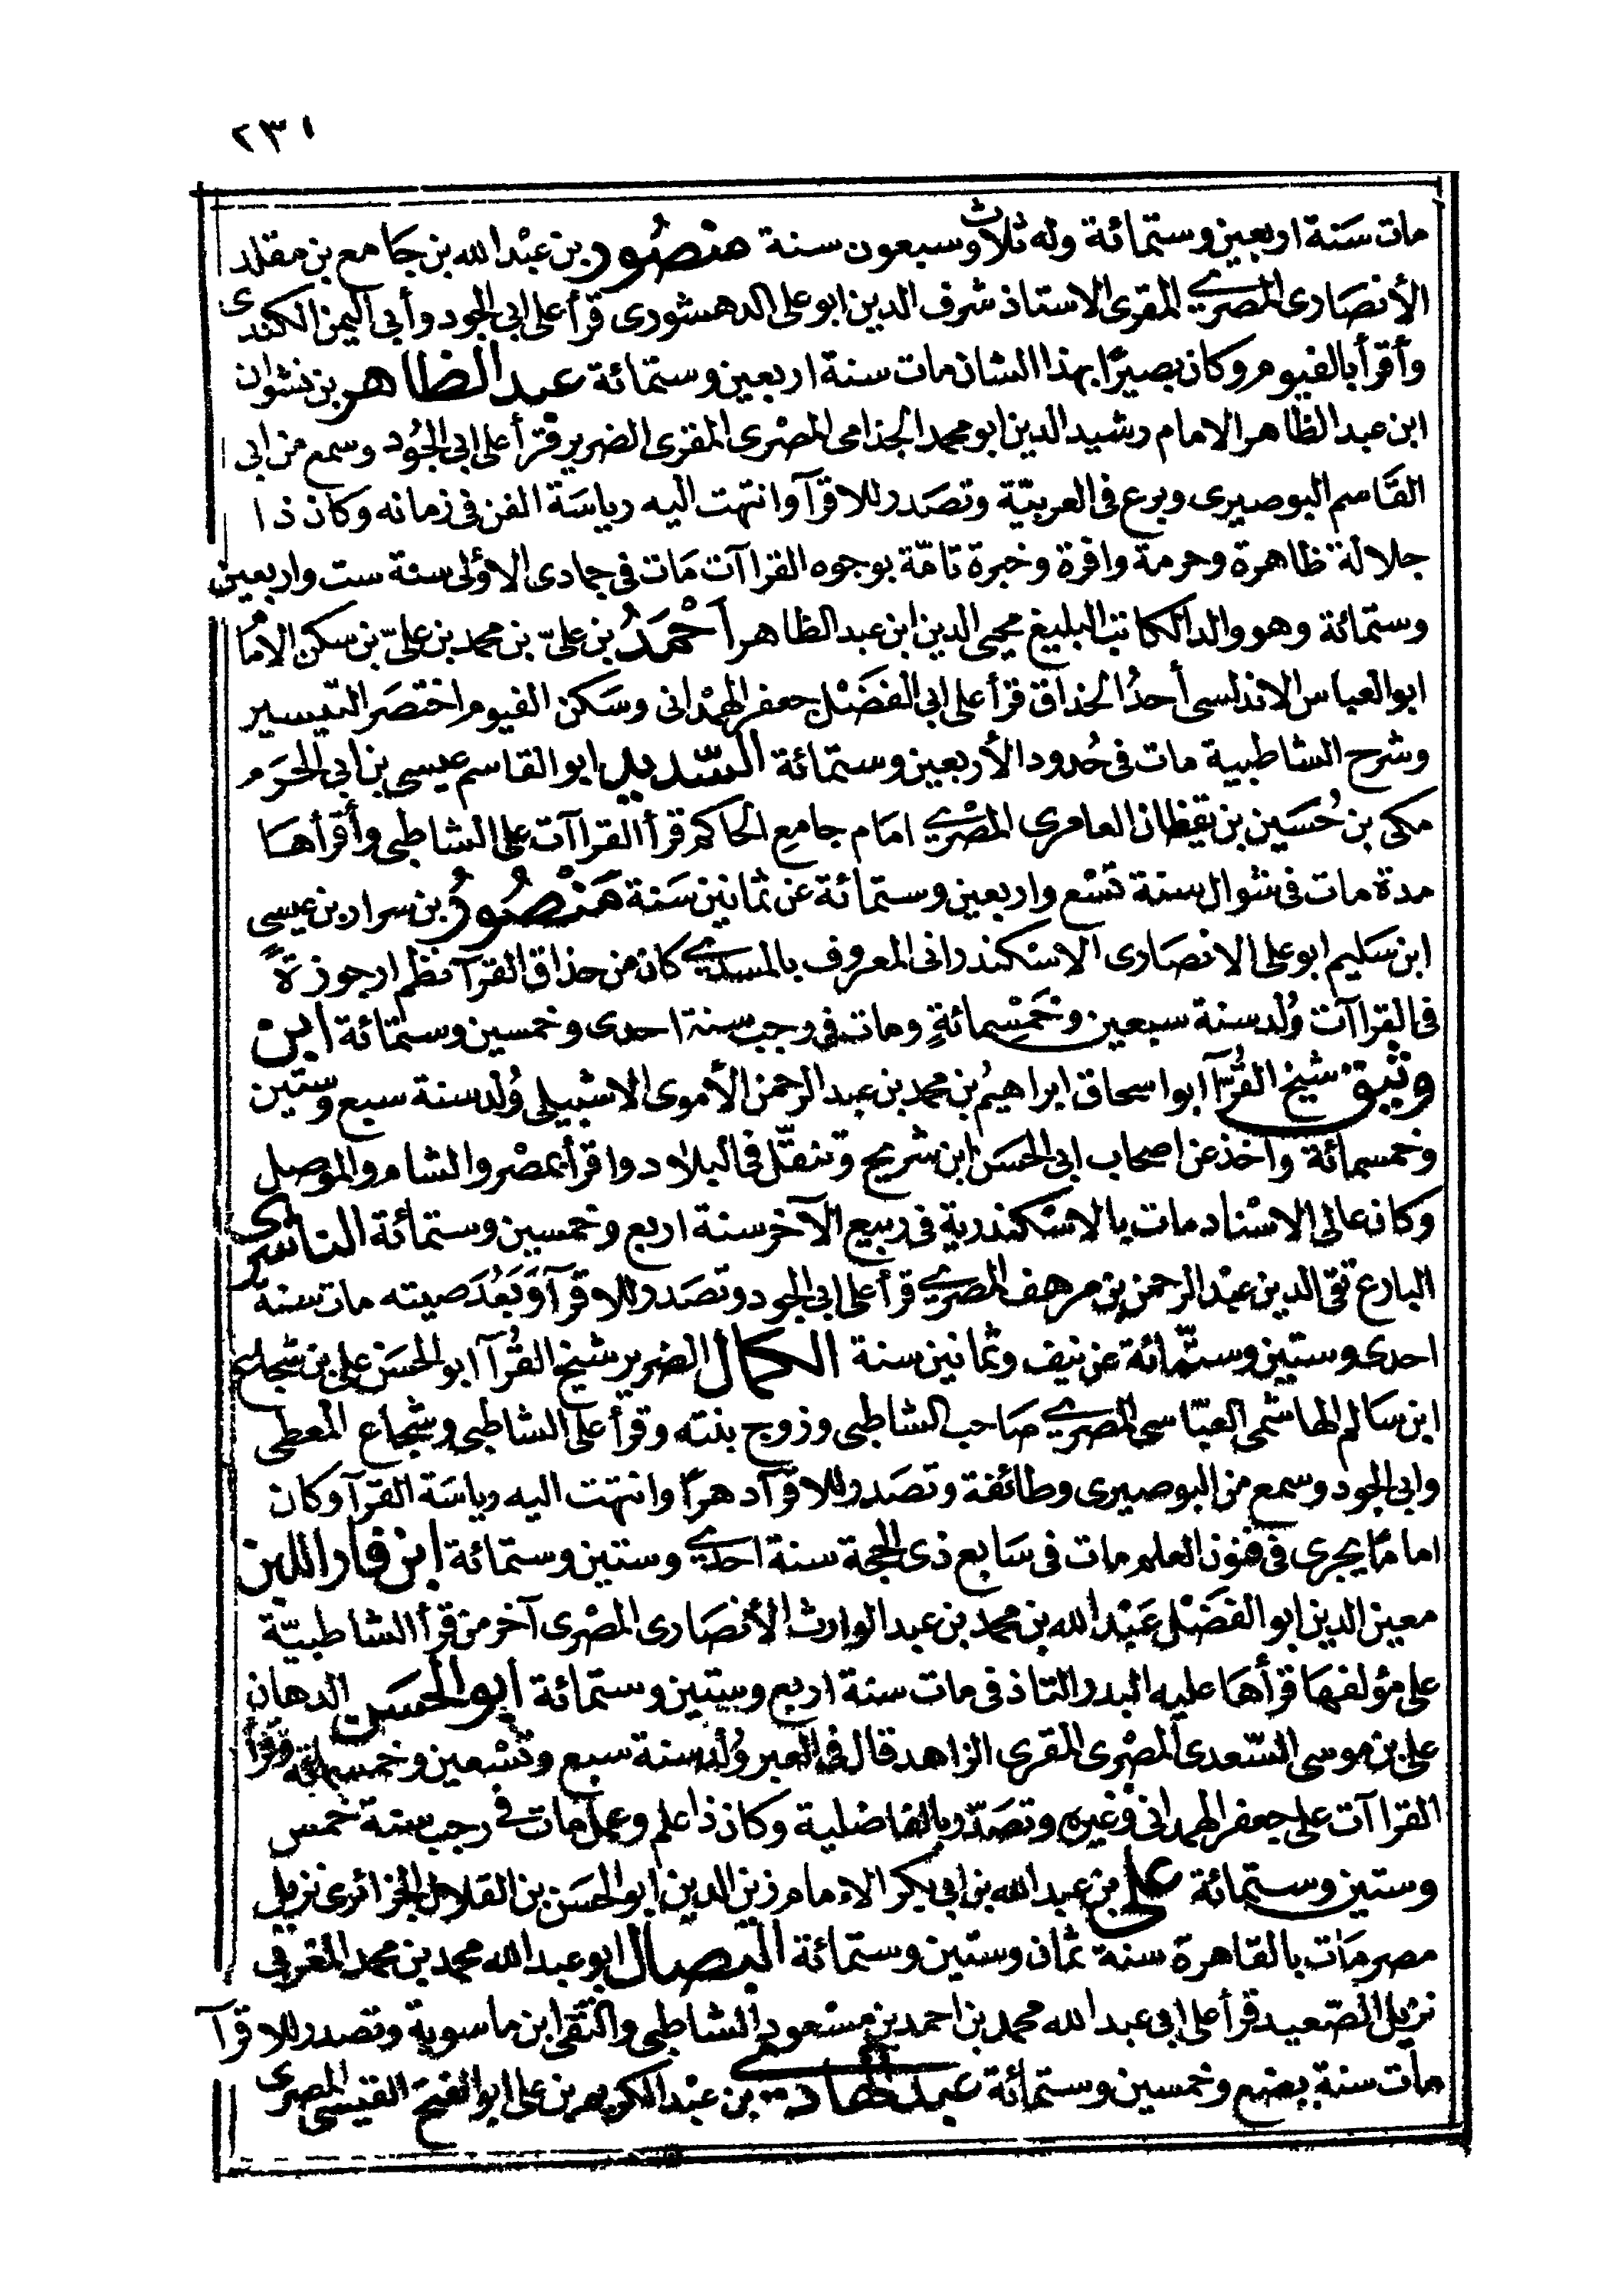 ٢٣١
مات سَنة اربعين وستمائة وله ثلاث وسبعون سنة منصُور بن عبْد الله بن جَامع بن مقلد
الأنصَارى المصرى المقرى الاستاذ شرف الدين ابو على الدهشورى قرأ على ابى الجود وأبى اليمن الكندى
وأقرأ بالفيوم وكان بصيرًا بهذا الشان مات سنة اربعين وستمائة عبد الظاهر بن نشوان
ابن عبد الظاهر الامام رشيد الدين ابو محمد الجذامى المصْرى المقرى الضرير قرأ على ابى الجُود وسمع من ابى
القَاسم البوصيرى وبرع فى العربيّة وتصَدر للاقرآ وانتهت اليه رياسَة الفن فى زمانه وكان ذا
جلالة ظاهرة وحرمة وافرة وخبرة تامّة بوجوه القراآت مَات فى جمادى الاوْلى سنة ست واربعين
وستمائة وهو والد الكاتب البليغ محيى الدين ابن عبد الظاهر أحْمَدُ بن علىّ بن محمد بن علىّ بن سكن الامَام
ابو العباس الاندلسى أحدُ الحذاق قرأ على ابى الفضَل جعفر الهمْدانى وسَكن الفيوم اختصَر التيسير
وشرح الشاطبية مات فى حُدود الأربعين وستمائة السّديد ابو القاسم عيسى بن ابى الحَرَم
مكى بن حُسَين بن يقظان العامرى المصْرى امَام جامع الحاكم قرأ القراآت على الشاطبى وأقرأهَا
مدة مات فى شوال سنة تسْع واربعين وستمائة عن ثمانين سَنة مَنْصُورُ بن سرار بن عيسى
ابن سَليم ابو على الانصَارى الاسْكندرانى المعروف بالمسدى كان من حذاق القرآ نظم ارجوزةً
فى القراآت وُلد سنة سبعين وخَمْسمائةٍ ومات فى رجب سنة احدى وخمسين وستمائة ابن
وثيق شيخ القُرّآ ابو اسحاق ابراهيمُ بن محمد بن عبد الرحمن الأموى الاشبيلى وُلد سنة سبع وستين
وخمسمائة وأخذ عن اصحاب ابى الحسَن ابن شريح وتنقّل فى البلاد واقرأ بمصْر والشام والموصل
وكان عالى الاسْناد مات بالاسْكندرية فى ربيع الآخر سنة اربع وخمسين وستمائة الناشرى
البارع تقى الدين عبْد الرحمن بن مرهف المصرى قرأ على ابى الجود وتصَدر للاقرآ وَبَعُدَ صيته مات سنة
احدى وستين وستّمائة عن نيف وثمانين سنة الكمال الضرير شيخ القُرّآ ابو الحسَن على بن شجاع
ابن سَالم الهاشمى العبّاسى المصرى صَاحب الشاطبى وزوج بنته وقرأ على الشاطبى وشجاع المعطى
وابى الجود وسمع من البوصيرى وطائفة وتصَدر للاقرآ دهرًا وانتهت اليه رياسَة القرآ وكان
امامًا يجرى فى فنون العلم مات فى سَابع ذى الحجة سنة احدى وستين وستمائة ابن فار اللبن
معين الدين ابو الفضَل عَبْد الله بن محمد بن عبد الوارث الأنصَارى المصْرى آخر من قرأ الشاطبيّة
على مؤلفهَا قرأهَا عليه البدر التاذفى مات سنة اربع وستين وستمائة أبو الحسَن الدهان
على بن موسى السّعدى المصْرى المقرى الزاهد قال فى العبر وُلد سنة سبع وتسْعين وخمسمائة وقرأ
القراآت على جعفر الهمدانى وغيره وتصَدّر بالفاضلية وكان ذا علم وعمل مات فى رجب سنة خمس
وستين وستمائة على بن عبد الله بن ابى بكر الامام زين الدين ابو الحسَن بن القلال الجزائرى نزيل
مصر مَات بالقاهرة سنة ثمان وستين وستمائة البصال ابو عبد الله محمد بن محمد المغربى
نزيل الصّعيد قرأ على ابى عبد الله محمد بن احمد بن مسْعود الشاطبى والتقى ابن ماسوية وتصدر للاقرآ
مات سنة بضع وخمسين وستمائة عبد الهادى بن عبْد الكريم بن على ابو الفتح القيسى المصرى